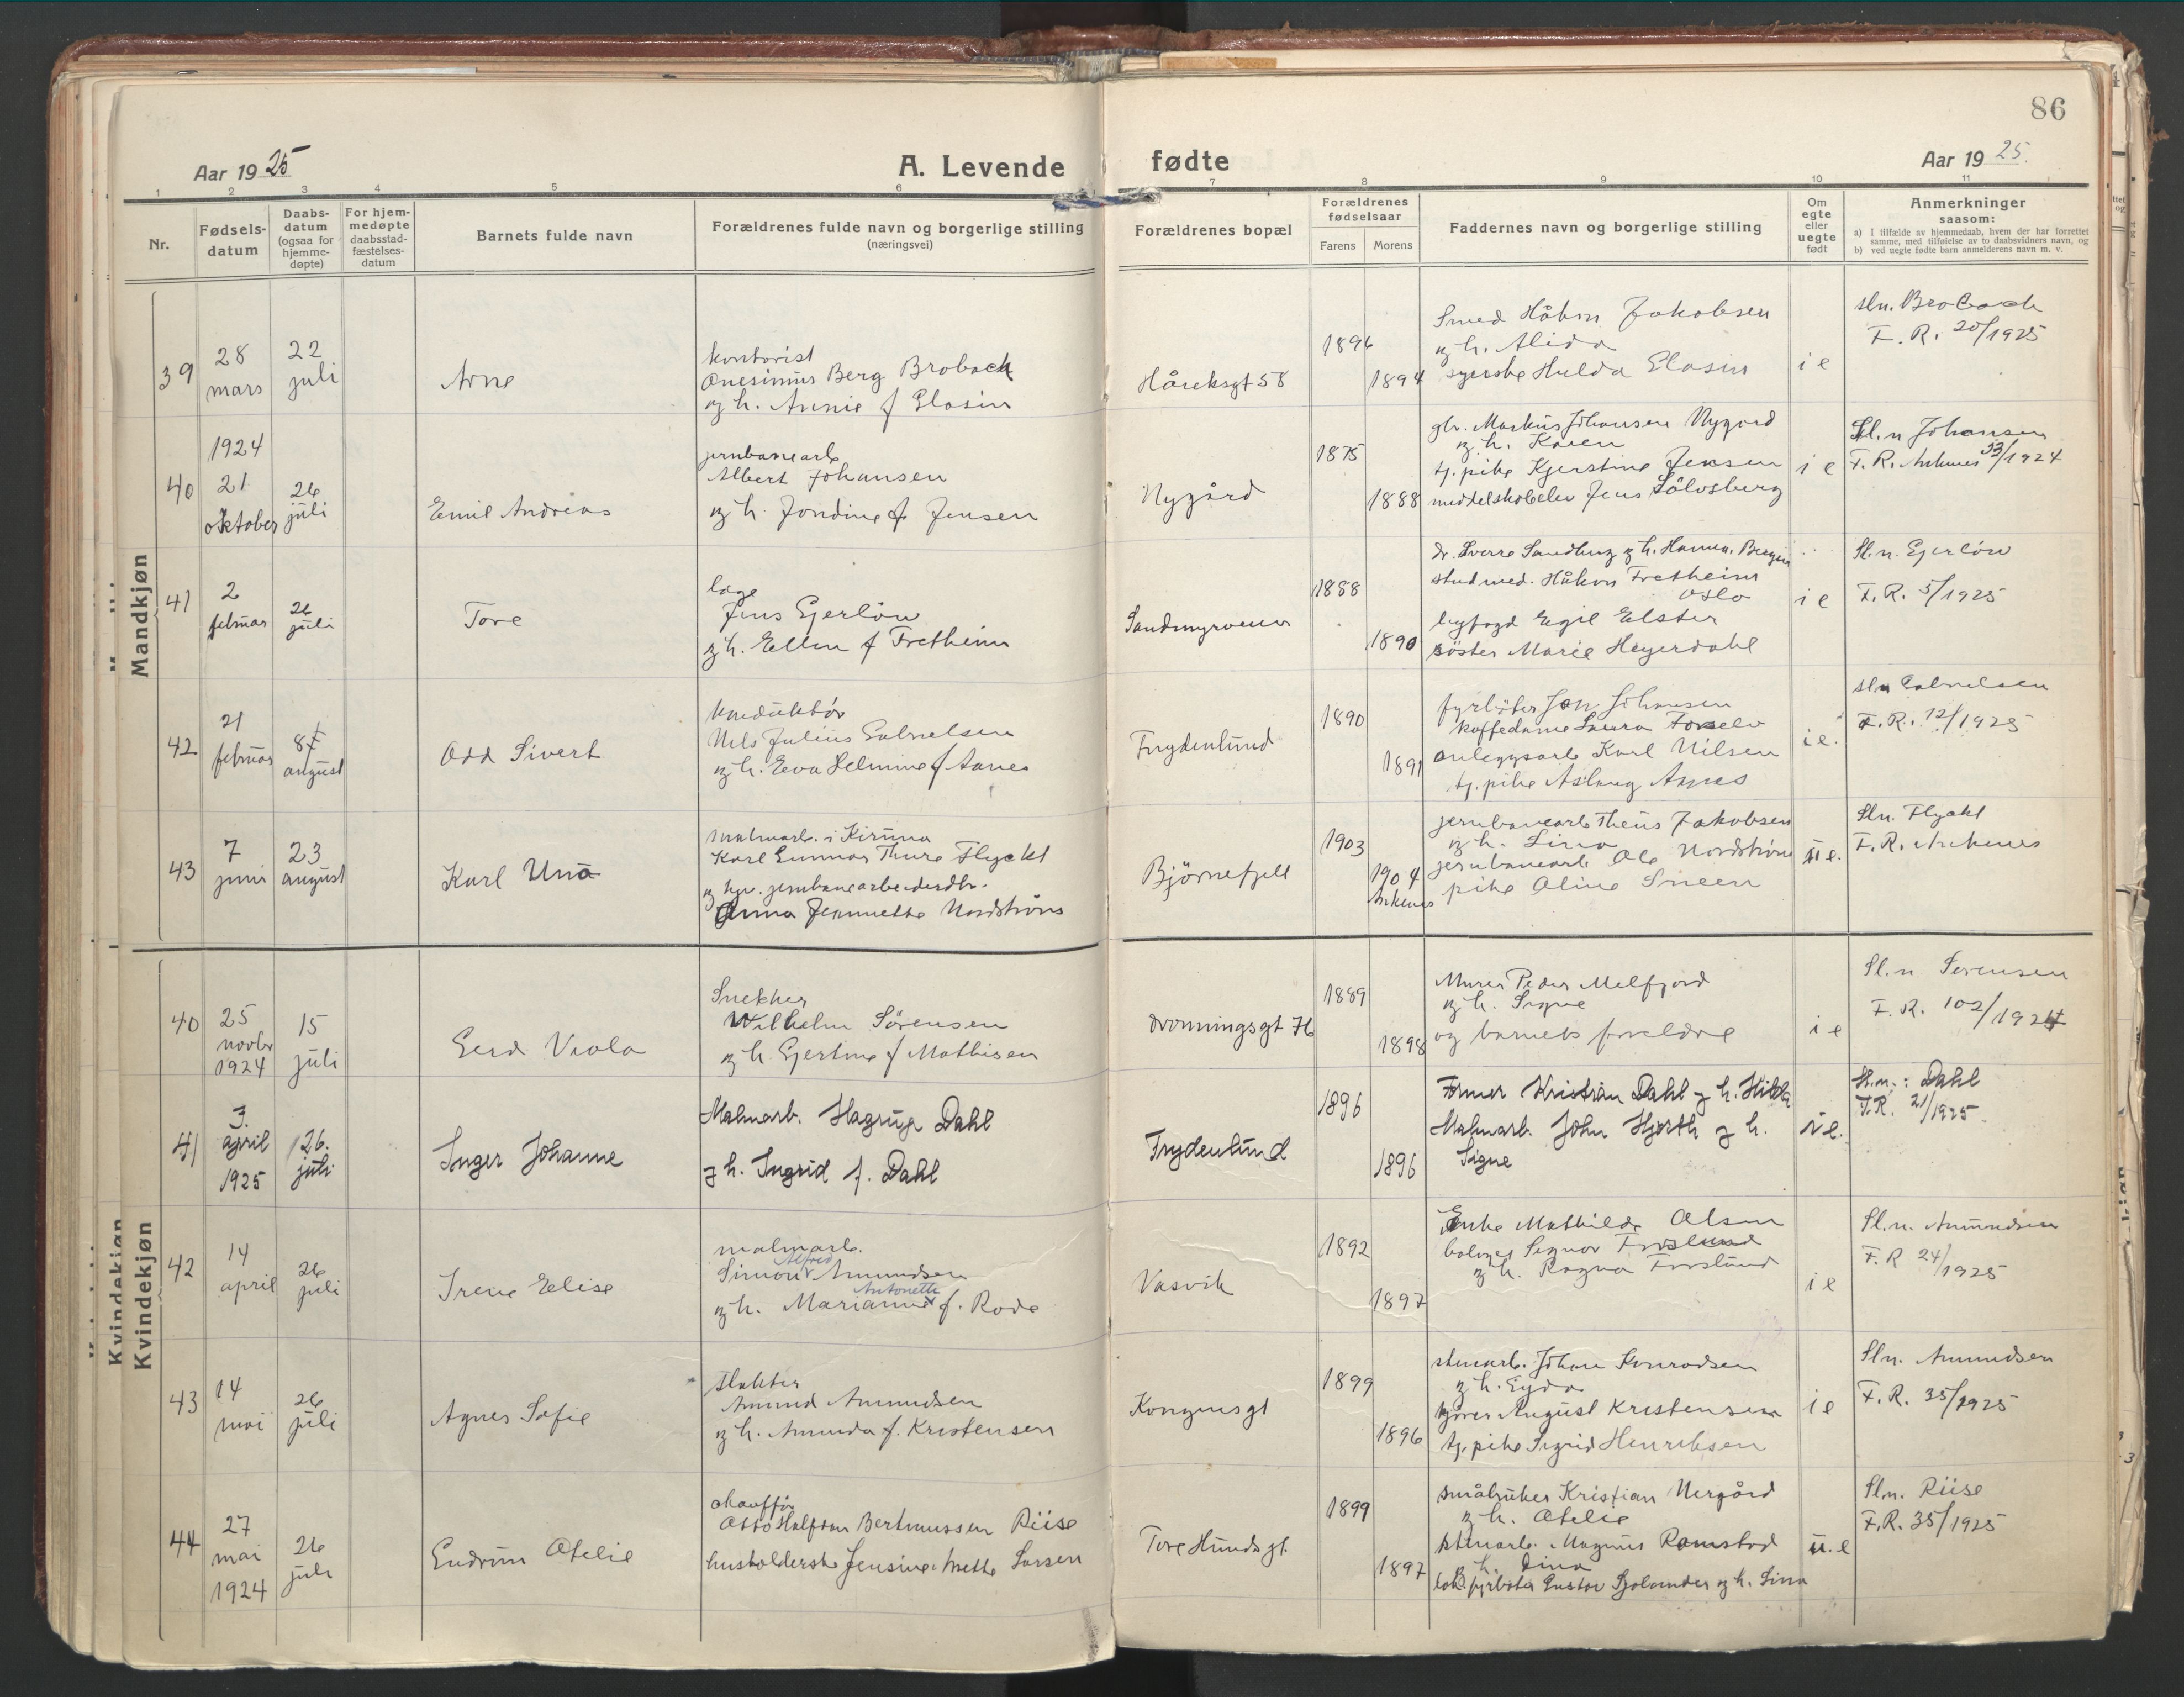 86
Aar 1925
A. Levende fødte
Aar 1925.
1 2 3 4 5 6 7 8 9 10 11
Nr.
Fødsels-
datum
Daabs-
datum
(ogsaa for
hjemme-
døpte)
For hjem-
medøpte
daabsstad-
fæstelses-
datum
Barnets fulde navn
Forældrenes fulde navn og borgerlige stilling
(næringsvei)
Forældrenes bopæl
Forældrenes
fødselsaar
Farens Morens
Faddernes navn og borgerlige stilling
Om
egte
eller
uegte
født
Anmerkninger
saasom:
a) I tilfælde av hjemmedaab, hvem der har forrettet
samme, med tilføielse av to daabsvidners navn, og
b) ved uegte fødte barn anmelderens navn m. v.
Mandkjøn
39
28
mars
22
juli
Arne
kontorist
Onesimus Berg Broback
og h. Annie f Elosin
Håreksgt 58
1896
1894
Smed Håkon Jakobsen
og h. Alida
syerske Hulda Elosin
i e
sln. Broback
F. R. 20/1925
40
1924
21
oktober
26
juli
Emil Andreas
jernbanearb
Albert Johansen
og h. Jondine f Jensen
Nygård
1875
1888
gbr. Markus Johansen Nygård
og h. Karen
tj. pike Kjerstine Jensen
middelskoleelev Jens Sålvsberg
i e
Sl.n Johansen
F. R. Ankenes 33/1924
41
2
februar
26
juli
Tore
læge
Jens Gjerløw
og h. Ellen f Fretheim
Sandmyrveien
1888
1890
dr. Sverre Sandberg og h. Hanna, Bergen
stud med. Håkon Fretheim
Oslo
byfogd Egil Elster
søster Marie Heyerdahl
i e
Sl.n. Gjerløw
F. R. 5/1925
42
21
februar
8
august
Odd Sivert
konduktør
Nils Julius Gabrielsen
og h. Eva Helmine f Aanes
Frydenlund
1890
1891
fyrbøter Jon Johansen
kaffedame Laura
anleggsarb Karl Nilsen
tj. pike Aslaug Aanes
i e.
sln Gabrielsen
F. R. 12/1925
43
7
juni
23
august
Karl Uno
malmarb. i Kiruna
Karl Gunnar Thure Flyckt
og hpr. jernbanearbeidersdtr.
Anna Jeannette Nordstrøm
Bjørnefjell
1903
1904
Ankenes
jernbanearb Theus Jakobsen
og h. Lina
jernbanearb Ole Nordstrøm
pike Aline Sneen
u e.
Sln. Flyckt
F. R. Ankenes
Kvindekjøn
40
25
novbr
1924
15
juli
Gerd Viola
Snekker
Wilhelm Sörensen
og h. Gjertine f Mathisen
Dronningsgt 76
1889
1898
Murer Peder Melfjord
og h. Signe
og barnets foreldre
i e
Sl.n Sørensen
F. R. 102/1924
41
3.
april
1925
26.
juli
Inger Johanne
Malmarb. Hagrup Dahl
og h. Ingrid f. Dahl
Frydenlund
1896
1896
Former Kristian Dahl og h. Hilda
Malmarb. John Hjorth og h.
Signe
i e.
Sl.n.: Dahl
F.R. 21/1925.
42
14
april
26
juli
Irene Elise
malmarb.
Alfred
Simon Amundsen
Antonette
og h. Marianne f. Rode
Vasvik
1892
1897
Enke Mathilde Olsen
Ragnar Forslund
og h. Ragna Forslund
i e
Sl.n. Amundsen
F. R 24/1925
43
14
mai
26
juli
Agnes Sofie
slakter
Amund Amundsen
og h. Amanda f. Kristensen
Kongensgt
1899
1896
stenarb. Johan Konradsen
og h. Gyda
kjører August Kristensen
tj. pike Sigrid Henriksen
i e
Sln. Amundsen
F. R. 35/1925
44
27
mai
1924
26
juli
Gudrun Ofelie
chauffør
Otto Halfdan Bertinussen Riise
husholderske Jensine Anette Larsen
Tore Hundsgt.
1899
1897
småbruker Kristian Nergård
og h. Ofelie
stenarb. Magnus Ramstad
og h. Dina
lok. fyrbøter Gustav Sjølander og h. Lina
u. e
Sl.n. Riise
F. R. 35/1925